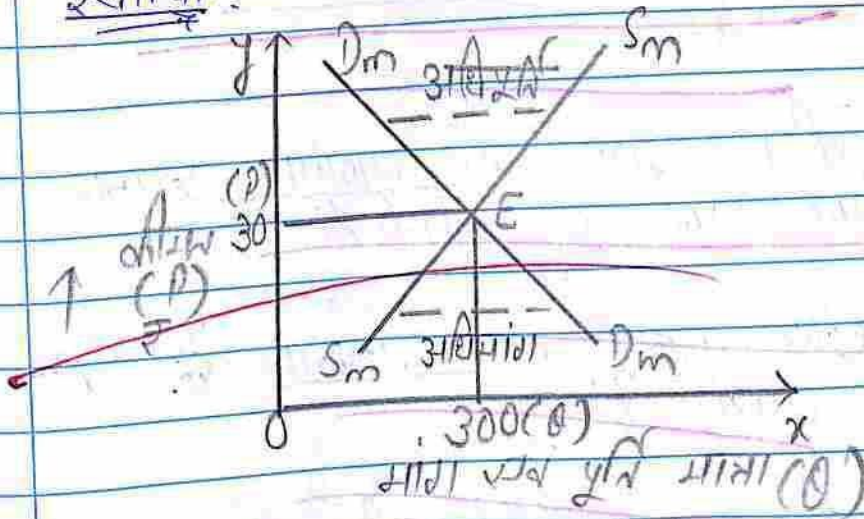 y
Dm
Sm
अधिपूर्ति
(P)
30
E
कीमत
(P)
₹
Sm
अधिमांग
Dm
0
300(Q)
x
मांग एवं पूर्ति मात्रा (Q)